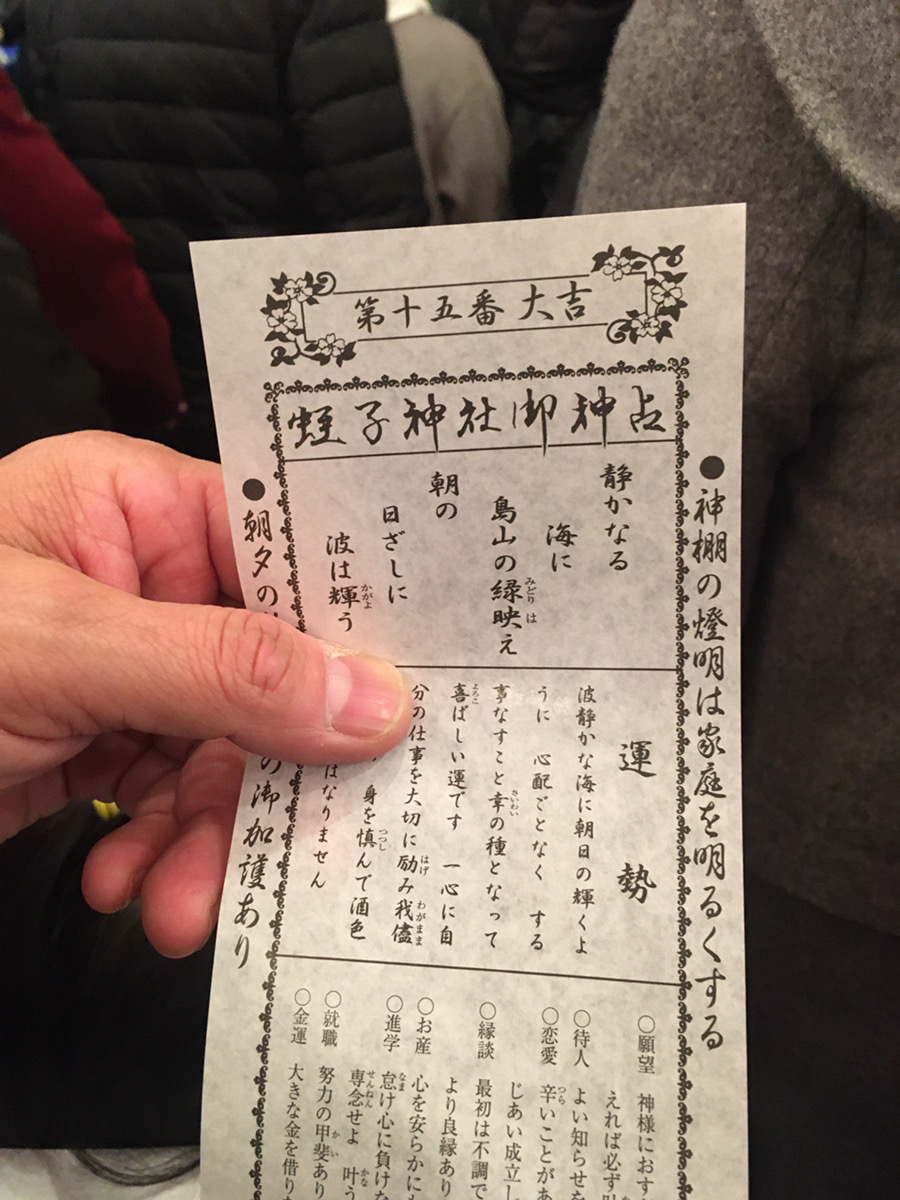 第十五番 大吉
蛭子神社御神占
●神棚の燈明は家庭を明るくする
静かなる
海に
島山の緑映え
朝の
日ざしに
波は輝う
運勢
波静かな海に朝日の輝くよ
うに 心配ごとなく する
事なすこと幸の種となって
喜ばしい運です 一心に自
分の仕事を大切に励み我儘
身を慎んで酒色
はなりません
○願望 神様におす
えれば必ず
○待人 よい知らせを
○恋愛 辛いことがあ
じあい成立し
○縁談 最初は不調で
より良縁あり
○お産 心を安らかに
○進学 怠け心に負けな
専念せよ 叶う
○就職 努力の甲斐あり
○金運 大きな金を借り
●朝夕の
の御加護あり